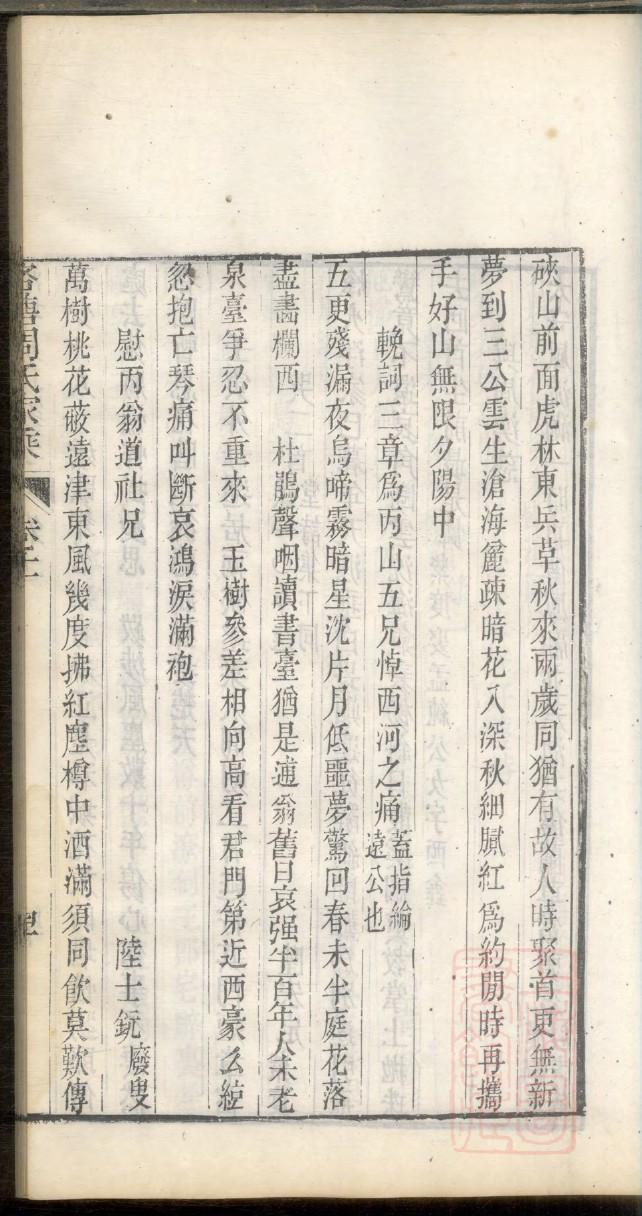 硤山前面虎林東兵草秋來兩歲同猶有故人時聚首更無新
夢到三公雲生滄海簾疎暗花入深秋細膩紅爲約閒時再攜
手好山無限夕陽中
輓詞三章爲丙山五兄悼西河之痛蓋指綸遠公也
五更殘漏夜烏啼霧暗星沈片月低噩夢驚回春未半庭花落
盡畵欄西　杜鵑聲咽讀書臺猶是逋翁舊日哀强半百年人未老
泉臺爭忍不重來　玉樹參差相向高看君門第近西豪么絃
忽抱亡琴痛叫斷哀鴻淚滿袍
慰丙翁道社兄　陸士鈗廢叟
萬樹桃花蔽遠津東風幾度拂紅塵樽中酒滿須同飲莫歎傳
周氏家乘　卷二